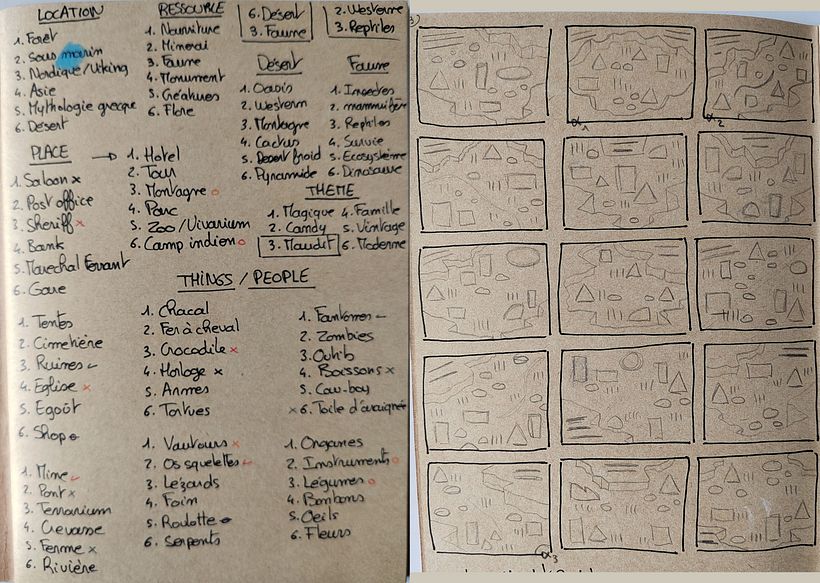 LOCATION
1. Forêt
2. Sous marin
3. Nordique/Viking
4. Asie
5. Mythologie grecque
6. Désert
RESSOURCE
1. Nourriture
2. Minerai
3. Faune
4. Monument
5. Créatures
6. Flore
6. Désert
3. Faune
2. Western
3. Reptiles
Désert
1. Oasis
2. Western
3. Montagne
4. Cactus
5. Désert froid
6. Pyramide
Faune
1. Insectes
2. mammifère
3. Reptiles
4. Survie
5. Ecosystème
6. Dinosaure
PLACE
1. Saloon x
2. Post office
3. Sheriff x
4. Bank
5. Marechal Ferrant
6. Gare
1. Hotel
2. Tour
3. Montagne
4. Parc
5. Zoo/Vivarium
6. Camp indien
THEME
1. Magique
2. Candy
3. Maudit
4. Famille
5. Vintage
6. Moderne
THINGS/PEOPLE
1. Tentes
2. Cimetière
3. Ruines
4. Eglise x
5. Egoût
6. Shop
1. Chacal
2. Fer à cheval
3. Crocodile x
4. Horloge x
5. Armes
6. Tortues
1. Fantômes
2. Zombies
3. Outils
4. Boissons x
5. Cow-boy
x 6. Toile d'araignée
1. Mine
2. Pont x
3. Terrarium
4. Crevasse
5. Ferme x
6. Rivière
1. Vautours x
2. Os squelettes
3. Lézards
4. Foin
5. Roulotte
6. Serpents
1. Organes
2. Instruments
3. Légumes
4. Bonbons
5. Oeils
6. Fleurs
α1
α2
α3